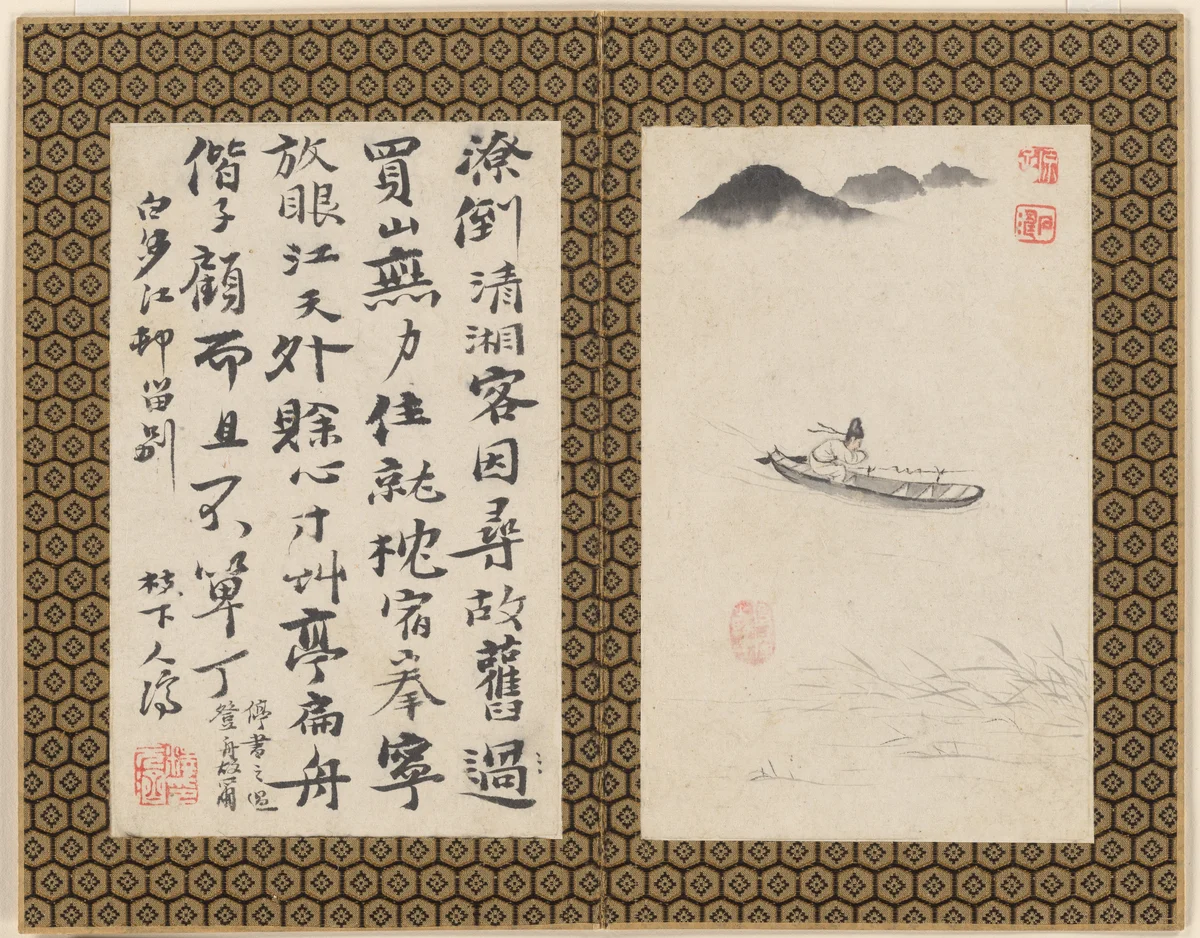 潦倒清湘客因尋故舊過
買山無力住就枕宿拳寧
放眼江天外賒心寸艸亭扁舟
偕子顧而且不算丁
停書之過
登舟故爾
白沙江邨留別
枝下人濟